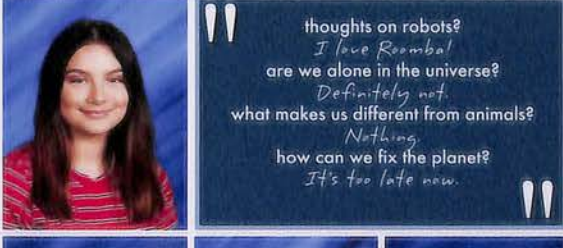 "
thoughts on robots?
I love Roomba!
are we alone in the universe?
Definitely not.
what makes us different from animals?
Nothing.
how can we fix the planet?
It's too late now.
"